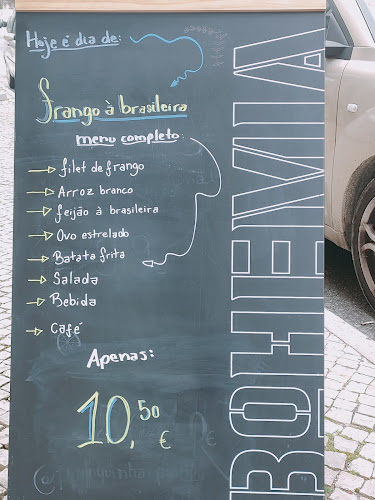 Hoje é dia de:
frango à brasileira
menu completo:
filet de frango
Arroz branco
feijão à brasileira
Ovo estrelado
Batata frita
Salada
Bebida
Café
Apenas:
10,50 €
BOHEMIA